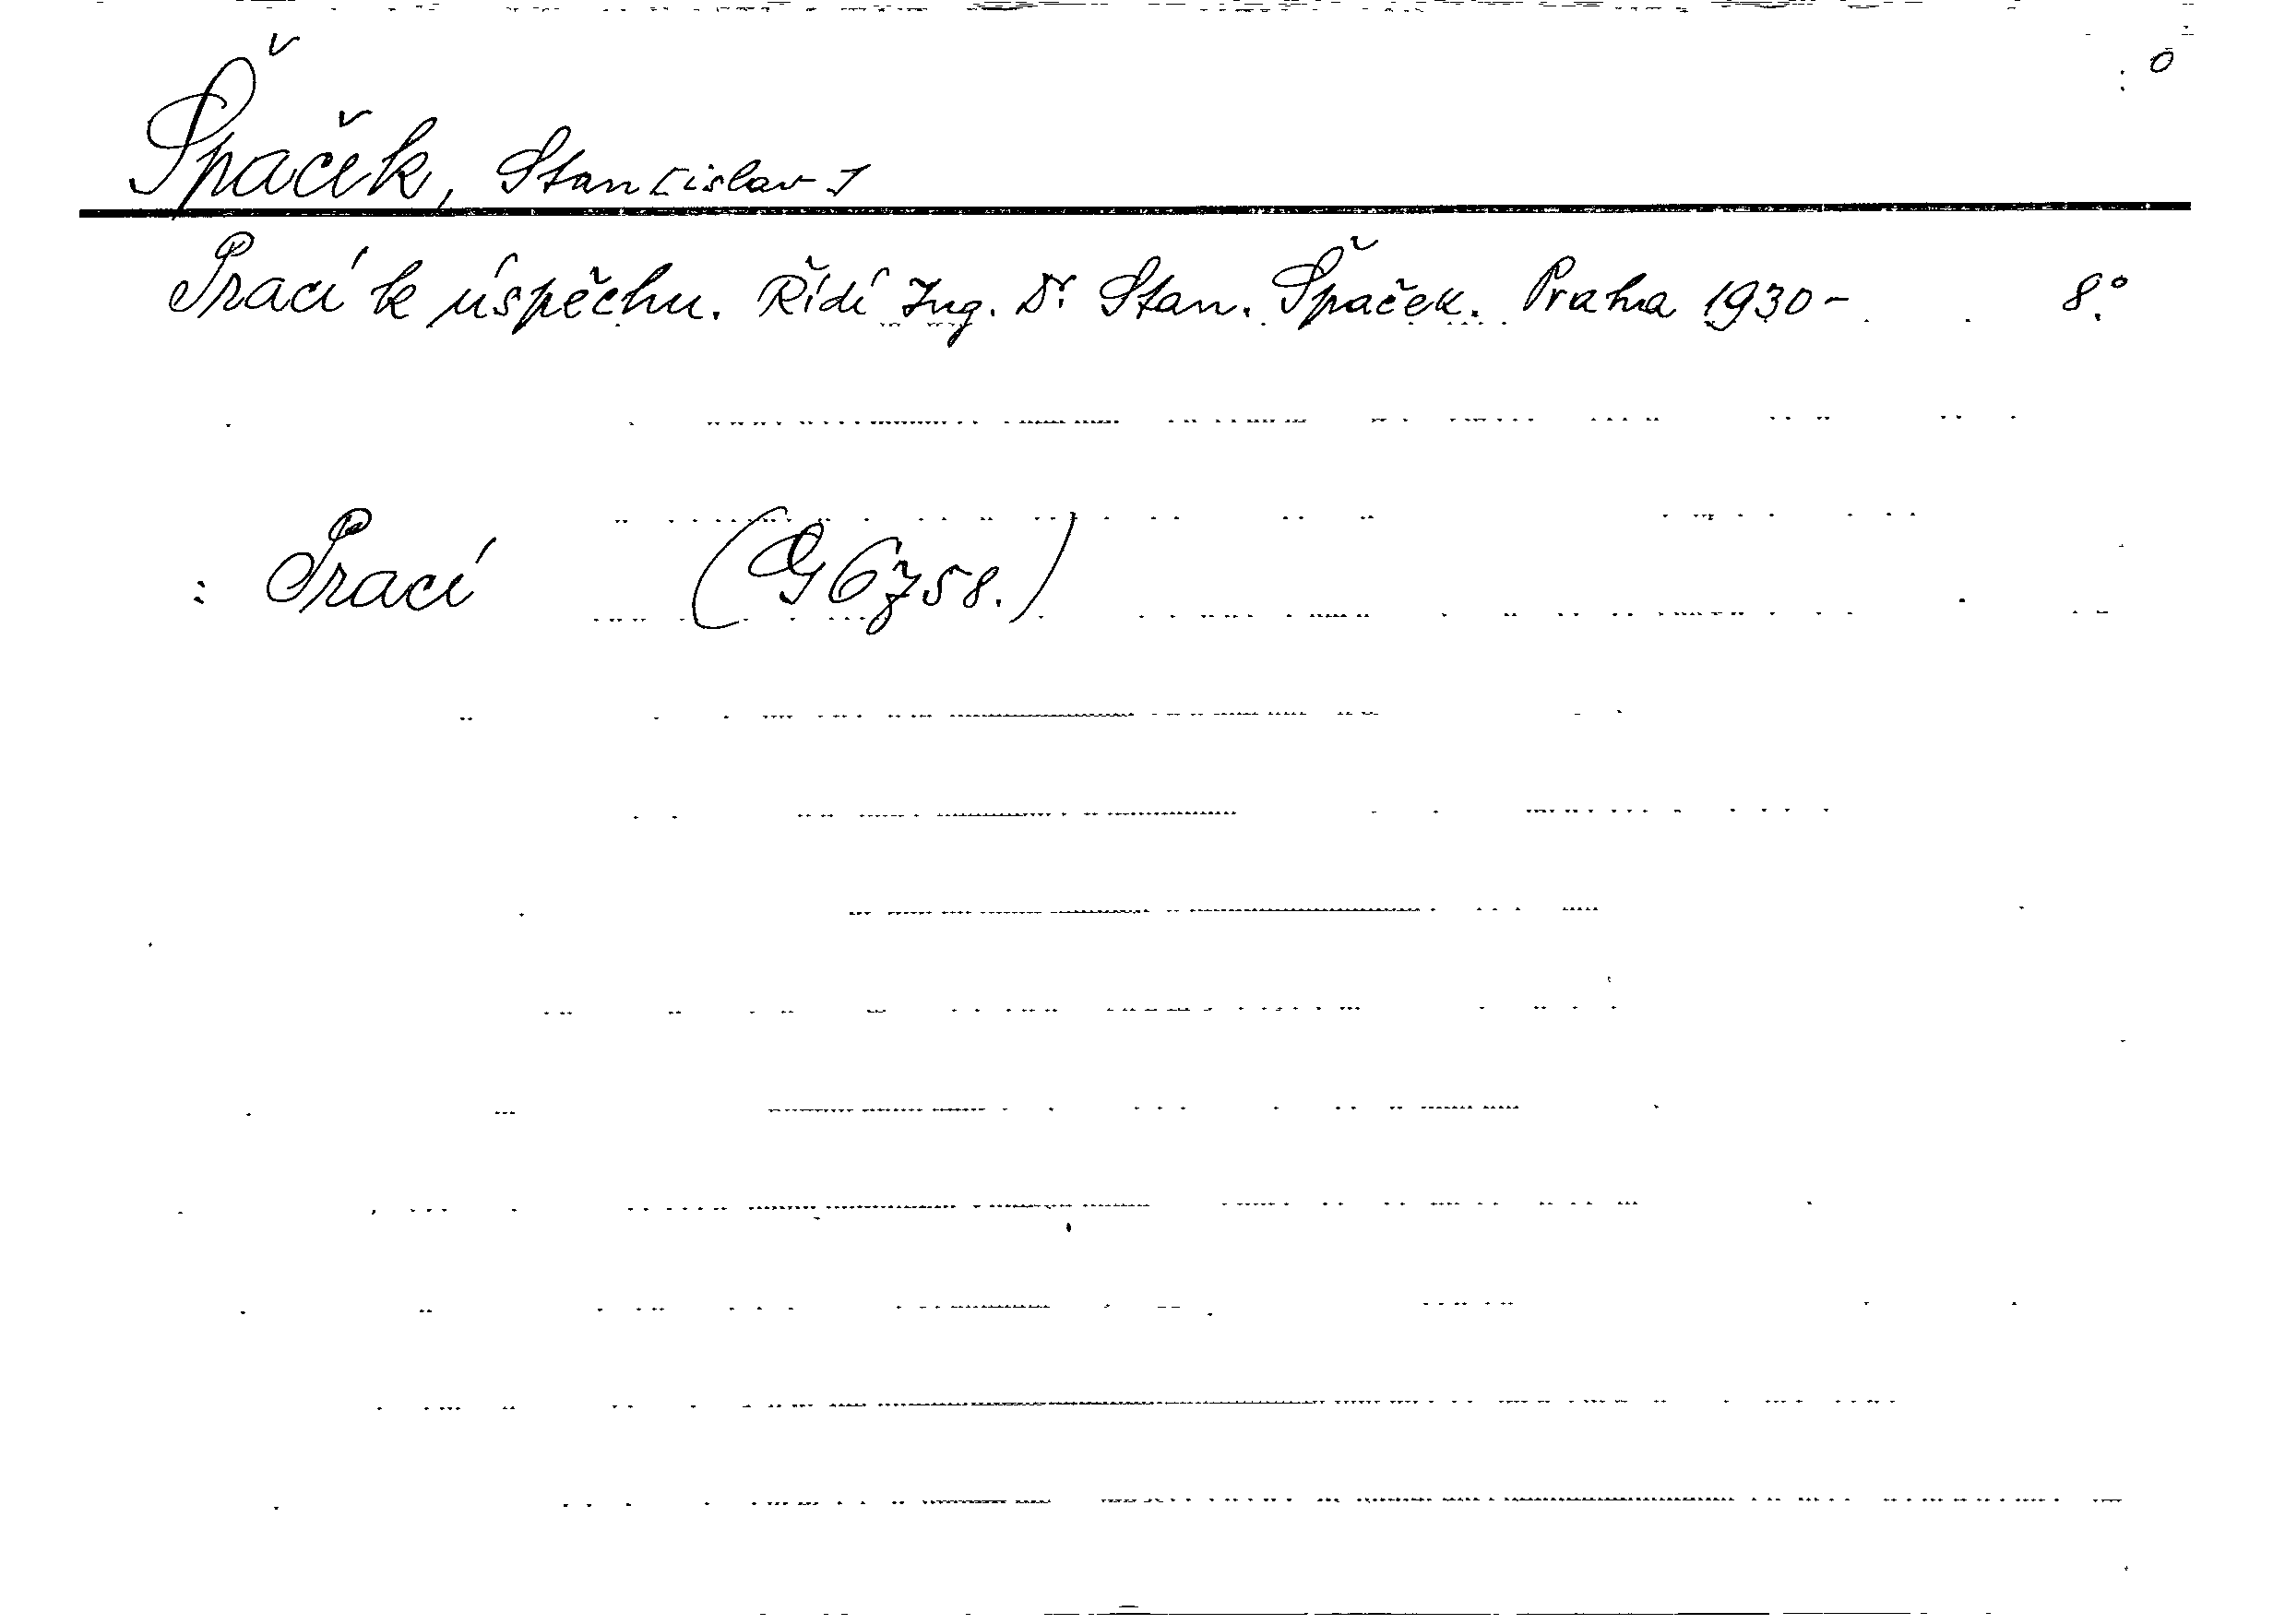 o
Špaček, Stan[islav]
Prací k úspěchu. Řídí Ing. Dr. Stan. Špaček. Praha 1930- 8.°
: Prací (G 6758.)